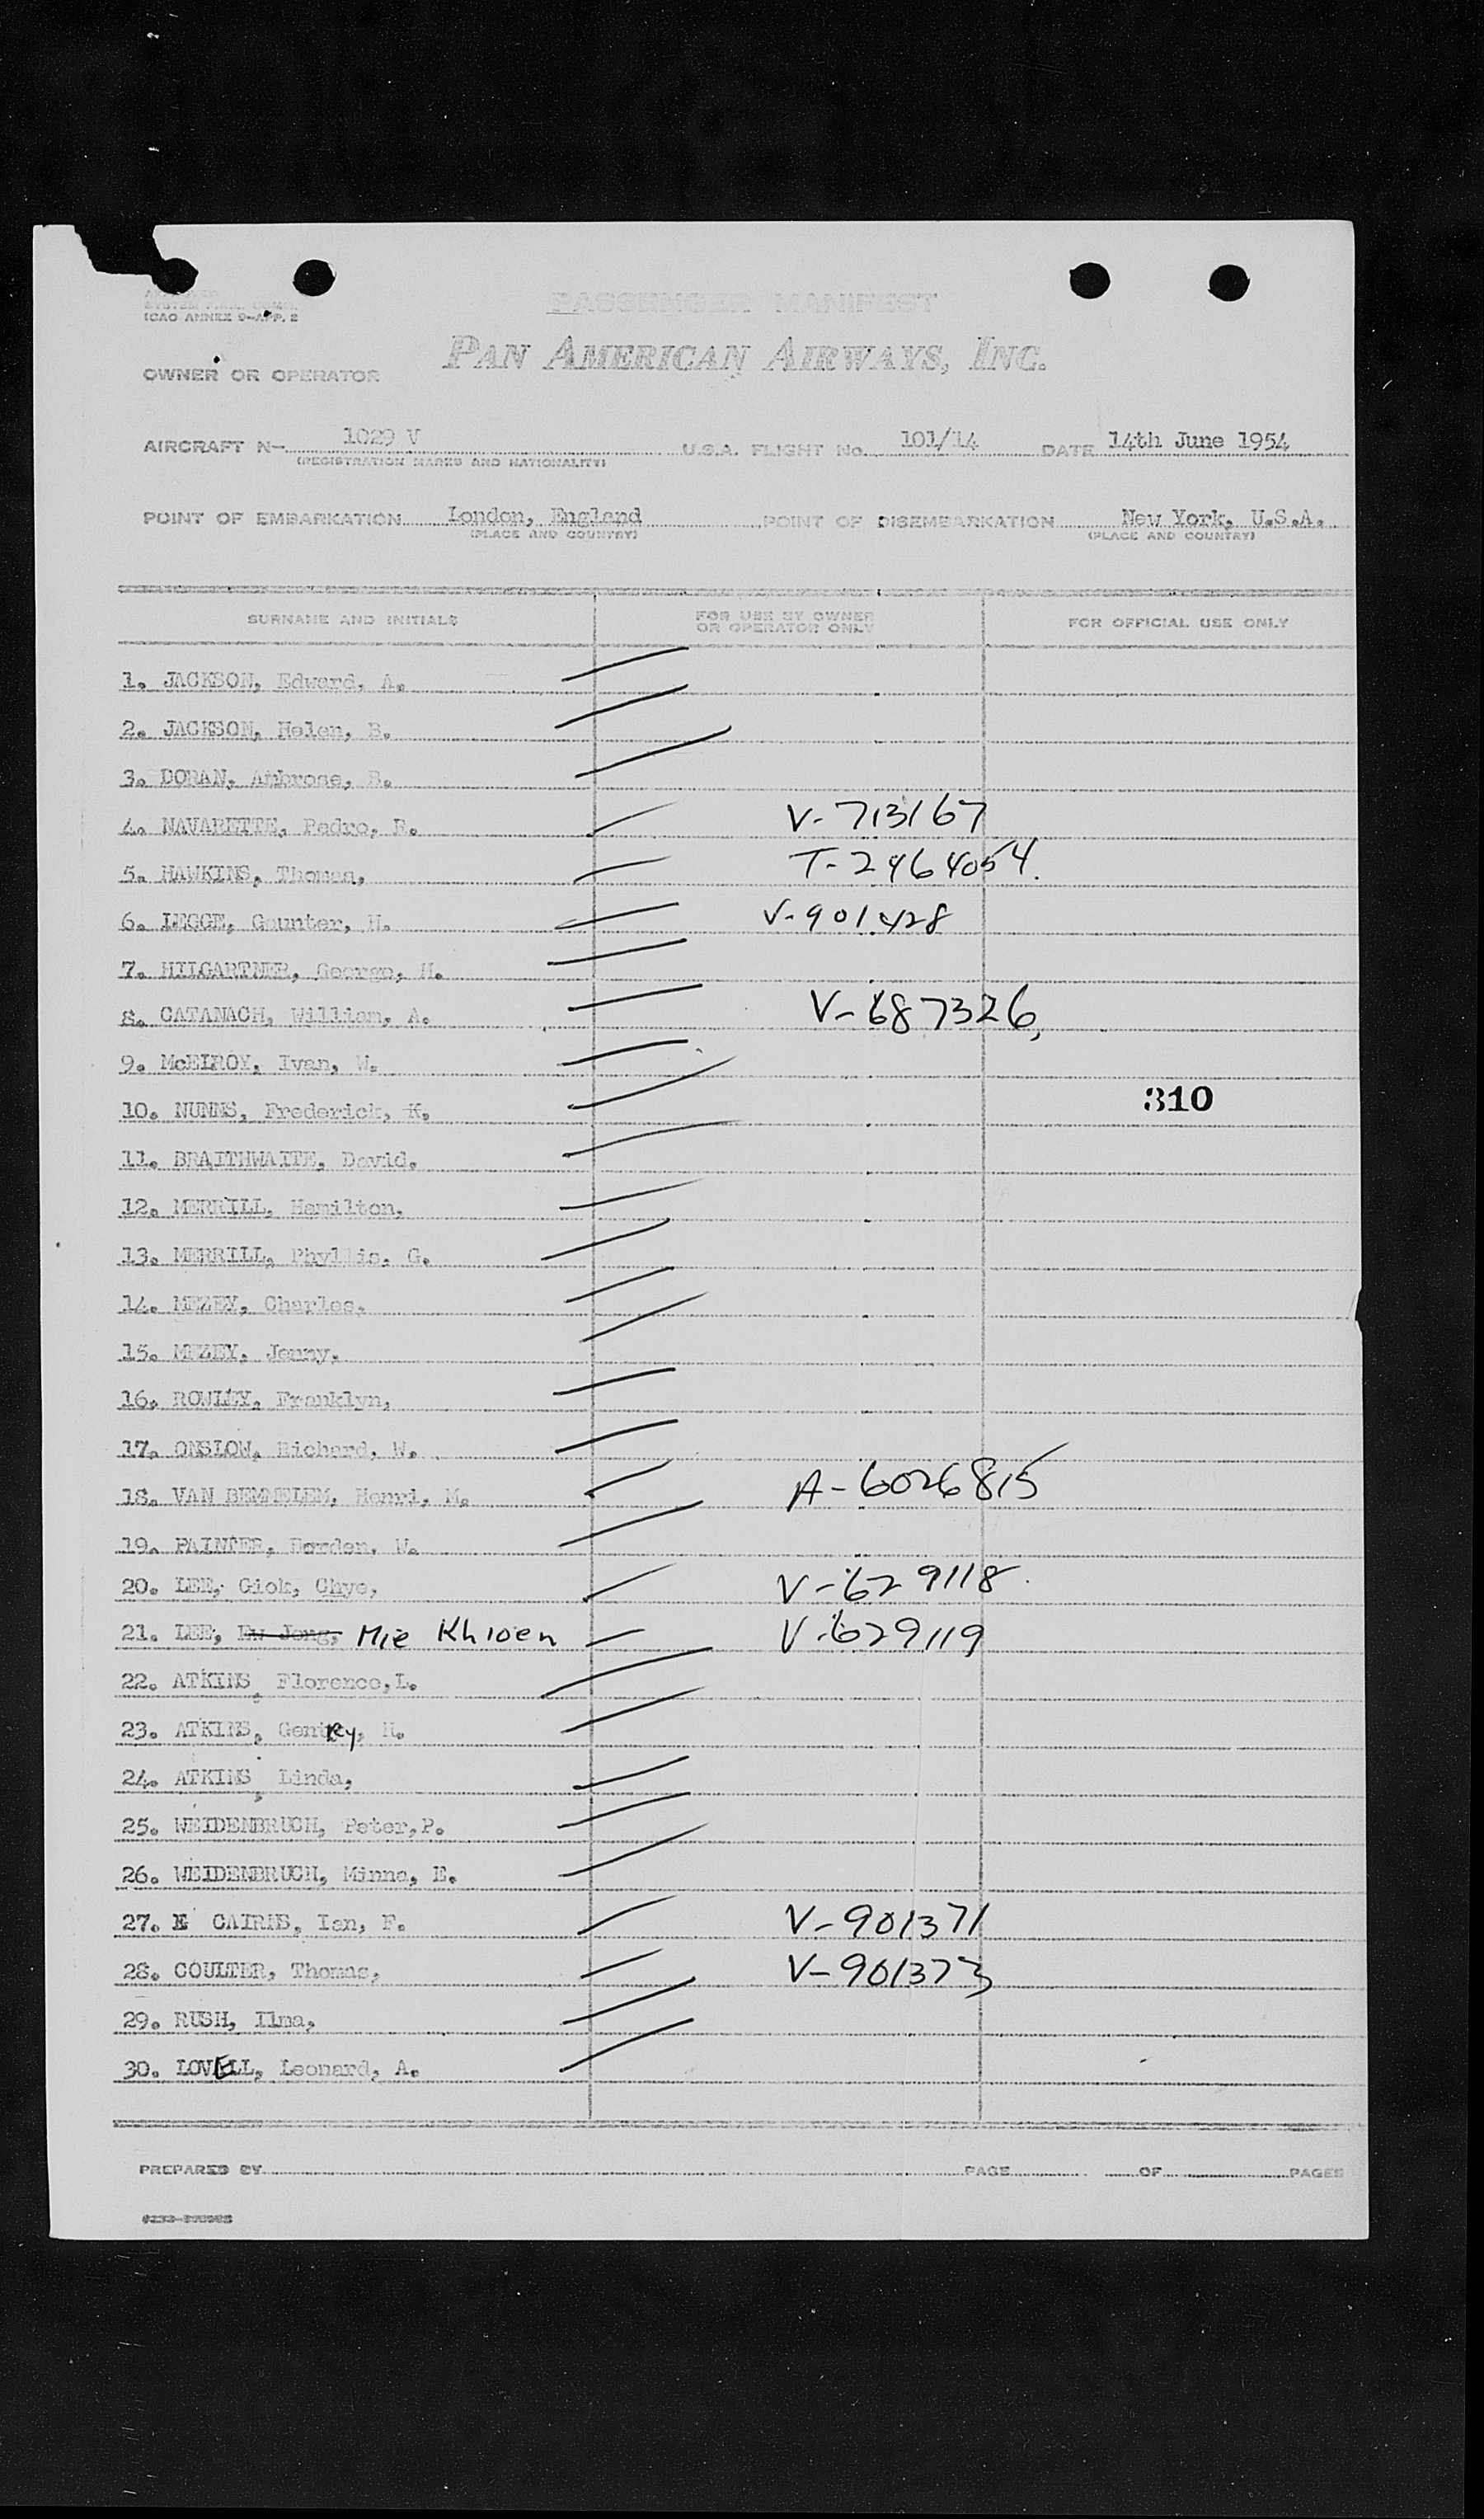 ICAO ANNEX 9-APP. 2
PASSENGER MANIFEST
OWNER OR OPERATOR PAN AMERICAN AIRWAYS, INC.
AIRCRAFT N- 1029 V U.S.A. FLIGHT No. 101/14 DATE 14th June 1954
(REGISTRATION MARKS AND NATIONALITY)
POINT OF EMBARKATION London, England POINT OF DISEMBARKATION New York, U.S.A.
(PLACE AND COUNTRY) (PLACE AND COUNTRY)
SURNAME AND INITIALS FOR USE BY OWNER OR OPERATOR ONLY FOR OFFICIAL USE ONLY
1. JACKSON, Edward, A.
2. JACKSON, Helen, B.
3. DORAN, Ambrose, B.
4. NAVARETTE, Pedro, F. V-713167
5. HAWKINS, Thomas, T-2464054.
6. LEGGE, Gaunter, H. V-901428
7. HILGARTNER, George, H.
8. CATANACH, William, A. V-687326,
9. McELROY, Ivan, W.
10. NUNNS, Frederick, K. 310
11. BRAITHWAITE, David.
12. MERRILL, Hamilton,
13. MERRILL, Phyllis, G.
14. MEZEY, Charles,
15. MEZEY, Jenny,
16. ROWLEY, Franklyn,
17. ONSLOW, Richard, W.
18. VAN BEMMELEM, Henri, M. A-6026815
19. PAINTER, Borden, W.
20. LEE, Giok, Chye, V-629118
21. LEE, Eu Jong, Mie Khioen V-629119
22. ATKINS, Florence, L.
23. ATKINS, Gentry, H.
24. ATKINS, Linda,
25. WEIDENBRUCH, Peter, P.
26. WEIDENBRUCH, Minna, E.
27. E CAIRNS, Ian, F. V-901371
28. COULTER, Thomas, V-901373
29. RUSH, Ilma,
30. LOVELL, Leonard, A.
PREPARED BY PAGE OF PAGES